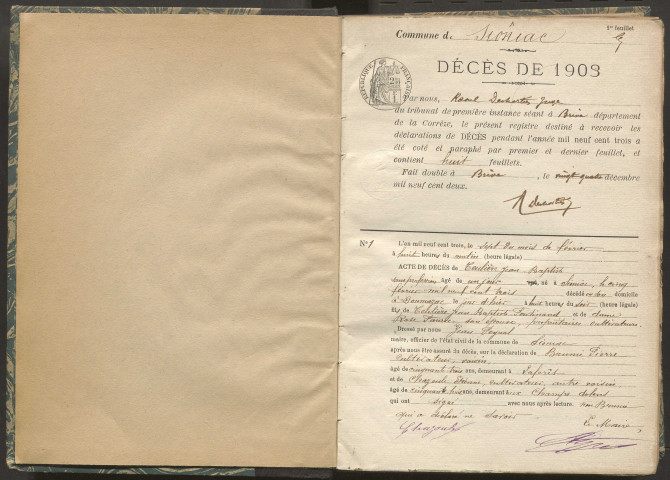 1er feuillet
Commune de Sioniac
DÉCÈS DE 1903
RÉPUBLIQUE FRANÇAISE
Par nous, Raoul Deshartes Juge
du tribunal de première instance séant à Brive département
de la Corrèze, le présent registre destiné à recevoir les
déclarations de DÉCÈS pendant l'année mil neuf cent trois a
été coté et paraphé par premier et dernier feuillet, et
contient huit feuillets.
Fait double à Brive, le vingt quatre décembre
mil neuf cent deux.
N° 1
L'an mil neuf cent trois, le sept du mois de février
à huit heures du matin (heure légale)
ACTE DE DÉCÈS de Jean Baptiste
sans profession âgé de un jour né à Sioniac, le cinq
février mil neuf cent trois décédé en son domicile
à le jour d'hier à huit heures du soir (heure légale)
fils de Jean Baptiste Ferdinand et de
son épouse, propriétaires cultivateurs,
Dressé par nous Jean
maire, officier de l'état civil de la commune de Sioniac
après nous être assuré du décès, sur la déclaration de Pierre
cultivateur, voisin,
âgé de cinquante trois ans, demeurant à
et de Chazoule Étienne, cultivateur, autre voisin
âgé de cinquante ans, demeurant aux Champs
qui ont signé avec nous après lecture, non
qui a déclaré ne savoir
Chazoule
Le Maire,